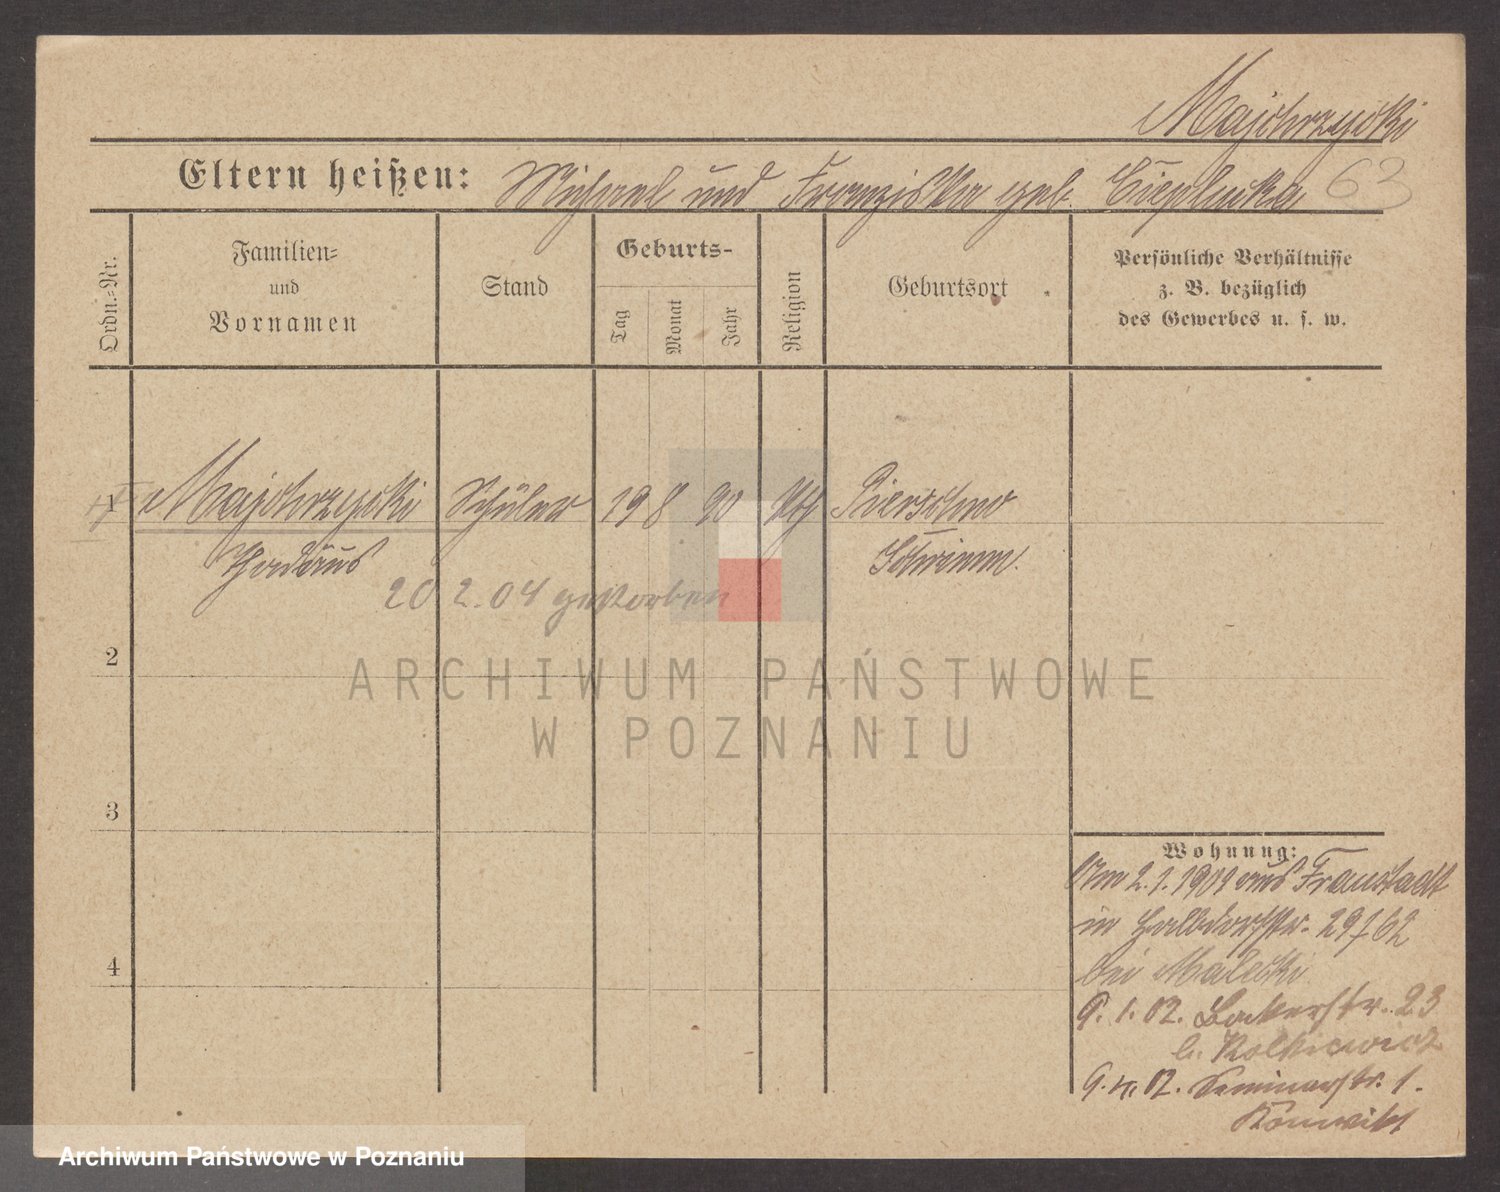 Majchrzycki
Eltern heißen: Michael und Franziska geb. Cieplucka 63
Ordn.-Nr.
Familien-
und
Vornamen
Stand
Geburts-
Tag
Monat
Jahr
Religion
Geburtsort
Persönliche Verhältnisse
z. B. bezüglich
des Gewerbes u. s. w.
1 Majchrzycki Schüler 19 8 90 Kth Pierschno
Thadäus Schrimm.
20 2. 04 gestorben
2
ARCHIWUM PAŃSTWOWE
W POZNANIU
3
4
Wohnung:
Am 2.1.1901 aus Fraustadt
in Halbdorfstr. 29/62
bei Malecki
9. 1. 02. Bäckerstr. 23
b.
9. 4. 02. Seminarstr. 1.
Konvikt
Archiwum Państwowe w Poznaniu